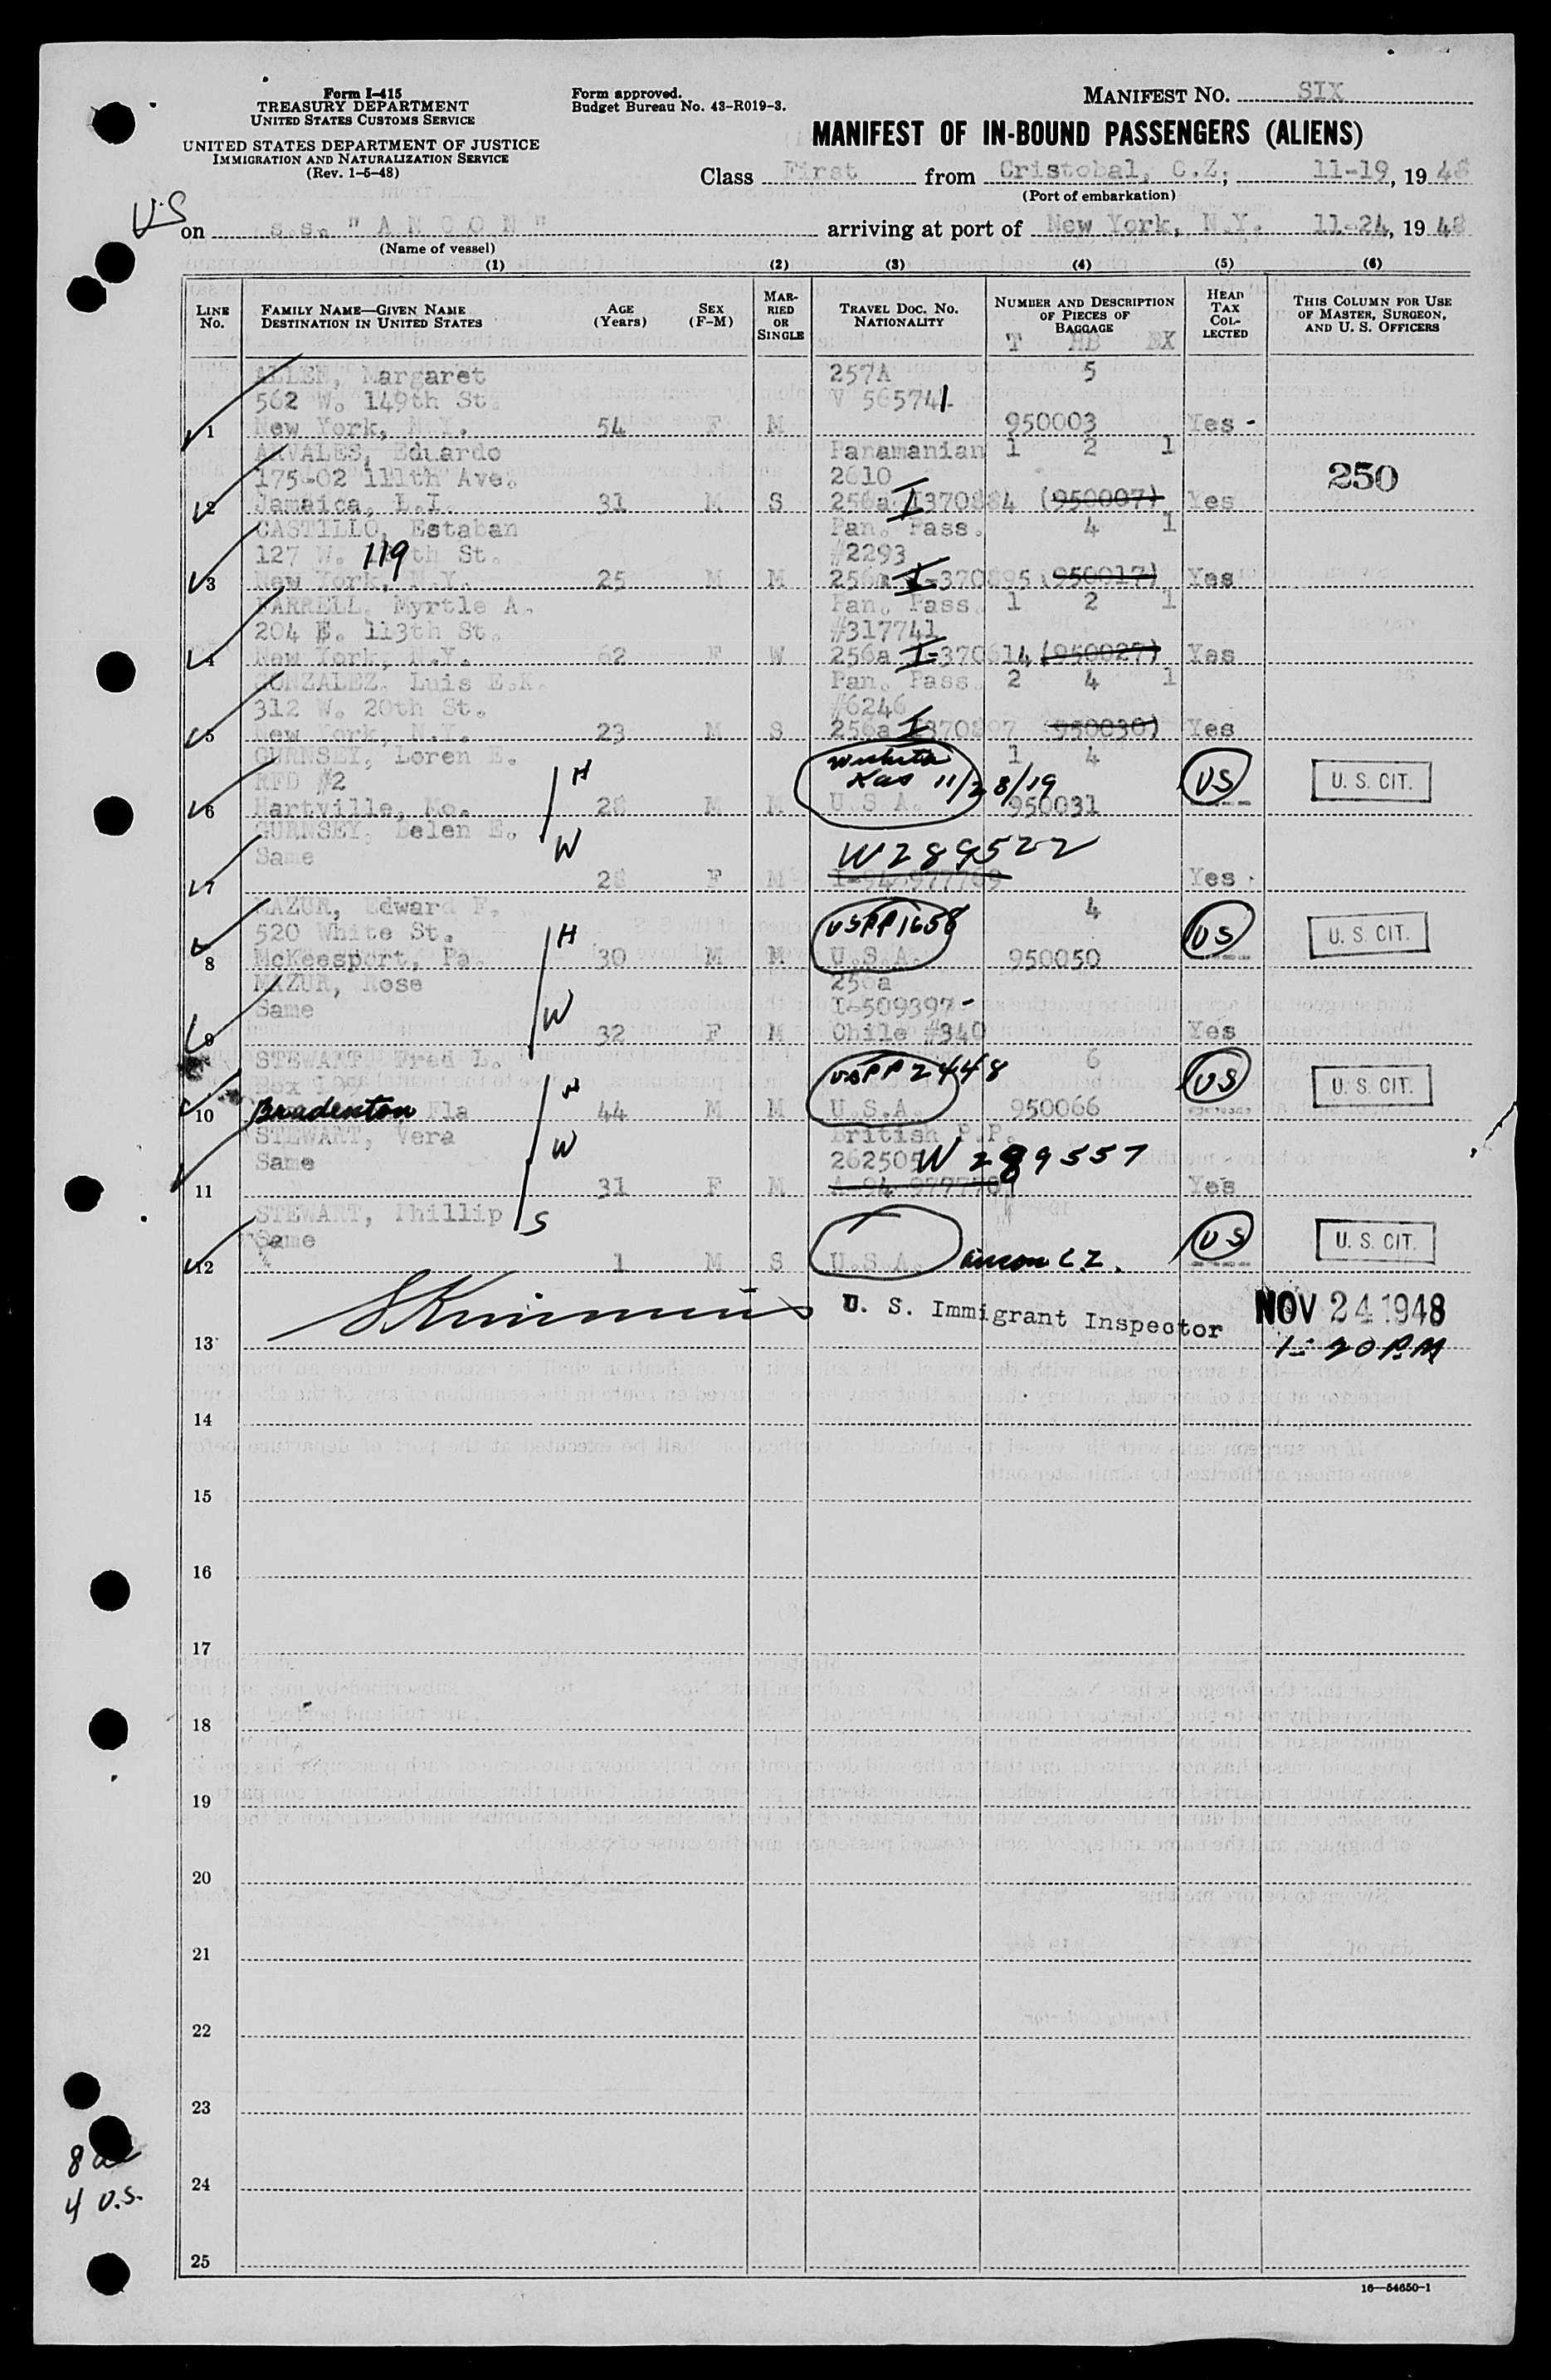 Form I-415
TREASURY DEPARTMENT
UNITED STATES CUSTOMS SERVICE
UNITED STATES DEPARTMENT OF JUSTICE
IMMIGRATION AND NATURALIZATION SERVICE
(Rev. 1-5-48)
Form approved.
Budget Bureau No. 43-R019-3.
MANIFEST NO. SIX
MANIFEST OF IN-BOUND PASSENGERS (ALIENS)
Class First from Cristobal, C.Z., 11-19, 1948
(Port of embarkation)
US
on s.s. "ANCON" arriving at port of New York, N.Y. 11-24, 1948
(Name of vessel)
(1) (2) (3) (4) (5) (6)
LINE No.
FAMILY NAME—GIVEN NAME
DESTINATION IN UNITED STATES
AGE (Years)
SEX (F-M)
MARRIED OR SINGLE
TRAVEL DOC. NO.
NATIONALITY
NUMBER AND DESCRIPTION OF PIECES OF BAGGAGE
T HB BX
HEAD TAX COLLECTED
THIS COLUMN FOR USE OF MASTER, SURGEON, AND U. S. OFFICERS
ALLEN, Margaret 257A 5
562 W. 149th St. V 565741
1 New York, N.Y. 54 F M 950003 Yes -
ARVALES, Eduardo Panamanian 1 2 1
175-02 111th Ave. 2610 250
2 Jamaica, L.I. 31 M S 256a I 370884 (950007) Yes
CASTILLO, Estaban Pan. Pass. 4 1
127 W. 119th St. #2293
3 New York, N.Y. 25 M M 256a I-370895 (950017) Yes
FARRELL, Myrtle A. Pan. Pass. 1 2 1
204 E. 113th St. #317741
4 New York, N.Y. 62 F W 256a I-370614 (950027) Yes
GONZALEZ, Luis E.K. Pan. Pass. 2 4 1
312 W. 20th St. #6246
5 New York, N.Y. 23 M S 256a I 370897 (950030) Yes
GURNSEY, Loren E. Wichita 1 4
RFD #2 H Kas 11/28/19 US U. S. CIT.
6 Hartville, Mo. 28 M M U.S.A. 950031
GURNSEY, Belen E. W
Same W289522
7 28 F M I-94 977769 Yes
MAZUR, Edward F. 4
520 White St. H USPP1658 US U. S. CIT.
8 McKeesport, Pa. 30 M M U.S.A. 950050
MAZUR, Rose 256a
Same W I-509397-
9 32 F M Chile #340 Yes
STEWART Fred L. 6
Box H USPP 2448 US U. S. CIT.
10 Bradenton Fla 44 M M U.S.A. 950066
STEWART, Vera W British P.P.
Same 262505 W 289557
11 31 F M Yes
STEWART, Phillip S
Same US U. S. CIT.
12 1 M S U.S.A. Ancon C.Z.
U. S. Immigrant Inspector NOV 24 1948
13 1:20 P.M
14
15
16
17
18
19
20
21
22
23
24
25
8 al
4 U.S.
16—54650-1